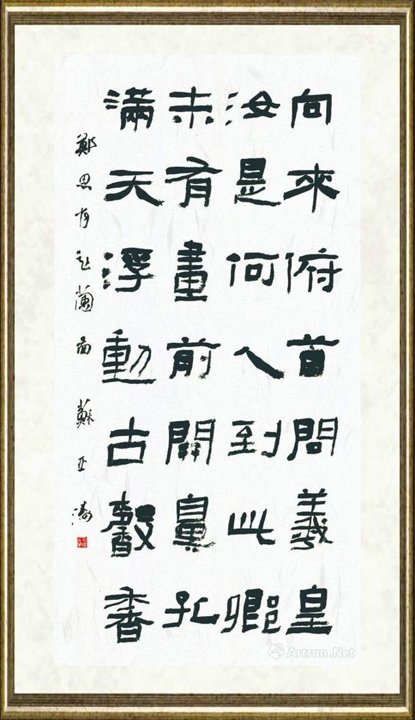 向來俯首問羲皇
汝是何人到此鄉
未有畫前開鼻孔
滿天浮動古馨香
鄭思肖題蘭 蘇亚濤
Artron.Net